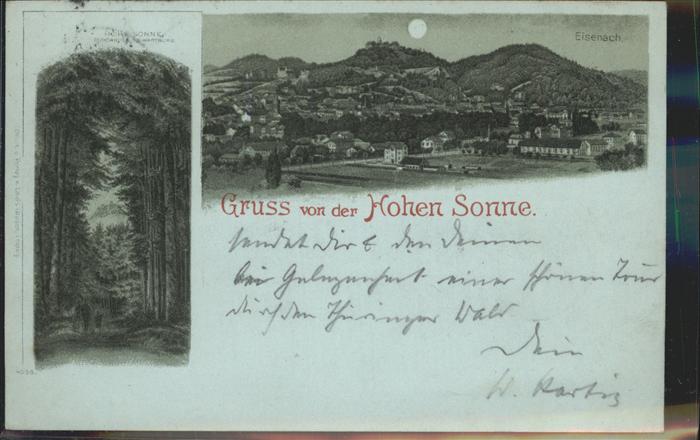 HOHE SONNE
Eisenach.
Gruss von der Hohen Sonne.
sendet Dir & den Deinen
bei Gelegenheit einer schönen Tour
durch den Thüringer Wald
Dein
W.